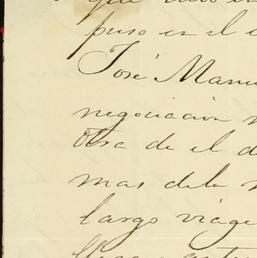 puso en el
José Manu
negociacion
otra de el d
mas dela
largo viage